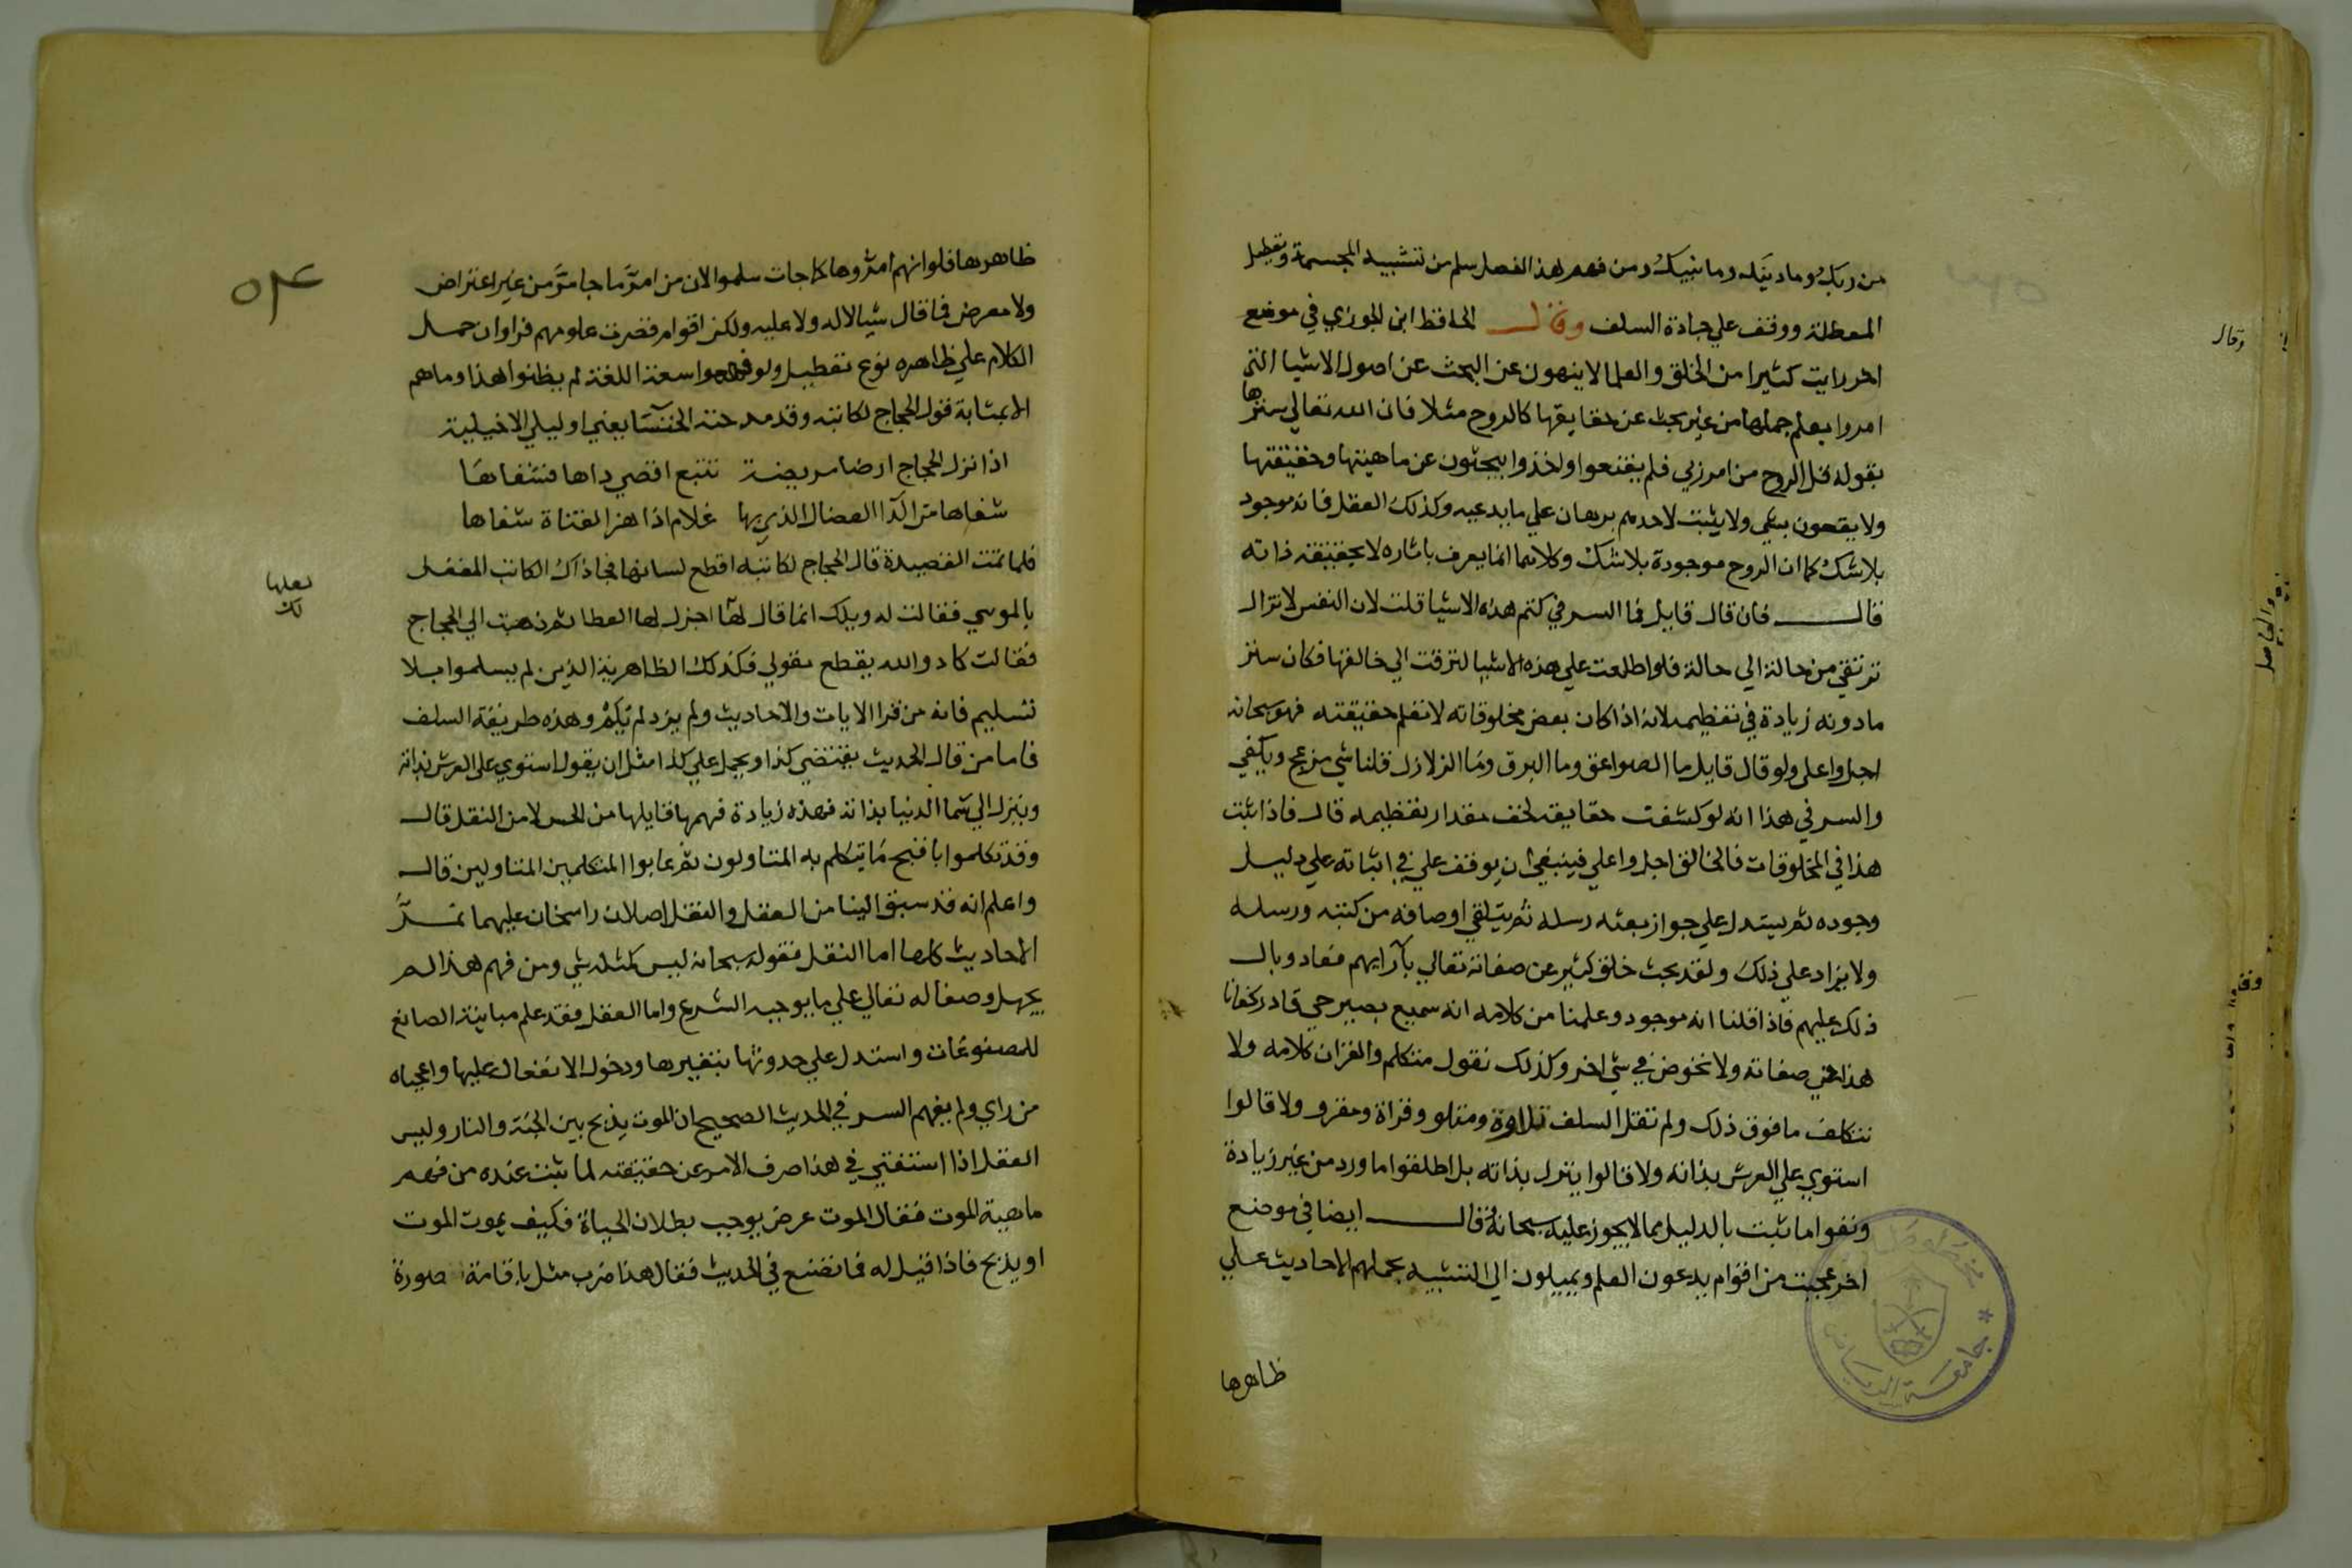 من ربك وما دينك وما نبيك ومن فهم هذا الفصل سلم من تشبيه المجسمة وتعطيل
المعطلة ووقف علي جادة السلف وقال الحافظ ابن الجوزي في موضع
اخر رايت كثيرا من الخلق والعلما لا ينهون عن البحث عن اصول الاشيا التي
امروا بعلم جملها من غير بحث عن حقايقها كالروح مثلا فان الله تعالي سترها
بقوله قل الروح من امر ربي فلم يقنعوا واخذوا يبحثون عن ماهيتها وحقيقتها
ولا يقعون بشي ولا يثبت لاحدهم برهان علي ما يدعيه وكذلك العقل فانه موجود
بلا شك كما ان الروح موجودة بلا شك وكلاهما انما يعرف باثاره لا بحقيقة ذاته
قال فان قال قايل فما السر في كتم هذه الاشيا قلت لان النفس لا تزال
تترقي من حالة الي حالة فلو اطلعت علي هذه الاشيا لترقت الي خالقها فكان ستر
ما دونه زيادة في تعظيمه لانه اذا كان بعض مخلوقاته لا تعلم حقيقته فهو سبحانه
اجل واعلي ولو قال قايل ما الصواعق وما البرق وما الزلازل قلنا شي مزعج ويكفي
والسر في هذا انه لو كشفت حقايقه لخف مقدار تعظيمه قال فاذا ثبت
هذا في المخلوقات فالخالق اجل واعلي فينبغي ان يوقف علي في اثباته علي دليل
وجوده ثم يستدل علي جواز بعثه رسله ثم يتلقي اوصافه من كتبه ورسله
ولا يزاد علي ذلك ولقد بحث خلق كثير عن صفاته تعالي بآرايهم فعاد وبال
ذلك عليهم فاذا قلنا انه موجود وعلمنا من كلامه انه سميع بصير حي قادر كفانا
هذا في صفاته ولا نخوض في شي اخر وكذلك نقول متكلم والقران كلامه ولا
نتكلف ما فوق ذلك ولم تقل السلف تلاوة ومتلو وقراة ومقرو ولا قالوا
استوي علي العرش بذاته ولا قالوا ينزل بذاته بل اطلقوا ما ورد من غير زيادة
ونفوا ما ثبت بالدليل مما لا يجوز عليه سبحانه وقال ايضا في موضع
اخر عجبت من اقوام يدعون العلم ويميلون الي التشبيه بحملهم الاحاديث علي
ظاهرها
جامعة الرياض
وقال
والحاصل
٥٤
ظاهرها فلو انهم امروها كما جات سلموا لان من امر ما جا ومر من غير اعتراض
ولا معرض فما قال شيا لا له ولا عليه ولكن اقوام قصرت علومهم فراوا ان حمل
الكلام علي ظاهره نوع تعطيل ولو فهموا سعة اللغة لم يظنوا هذا وما هم
الا بمثابة قول الحجاج لكاتبه وقد مدحته الخنسا يعني او ليلي الاخيلية
اذا نزل الحجاج ارضا مريضة تتبع اقصي داها فشفاها
شفاها من الدا العضال الذي بها غلام اذا هز القناة شفاها
فلما تمت القصيدة قال الحجاج لكاتبه اقطع لسانها فجا ذاك الكاتب المغفل
بالموسي فقالت له ويلك انما قال لها اجزل لها العطا ثم ذهبت الي الحجاج
لعلها
لك
فقالت كاد والله يقطع مقولي فكذلك الظاهرية الذين لم يسلموا بلا
تسليم فانه من قرا الايات والاحاديث ولم يزد لم يُلم وهذه طريقة السلف
فاما من قال الحديث يقتضي كذا ويحمل علي كذا مثل ان يقول استوي علي العرش بذاته
وينزل الي سما الدنيا بذاته فهذه زيادة فهمها قايلها من الحس لا من النقل قال
وقد تكلموا باقبح ما يتكلم به المتاولون ثم عابوا المتكلمين المتاولين قال
واعلم انه قد سبق الينا من العقل والنقل اصلان راسخان عليهما تمر
الاحاديث كلها اما النقل فقوله سبحانه ليس كمثله شي ومن فهم هذا لم
يحمل وصفا له تعالي علي ما يوجبه الشرع واما العقل فقد علم مباينة الصانع
للمصنوعات واستدل علي حدوثها بتغيرها ودخول الانفعال عليها واعجباه
من راي ولم يفهم السر في الحديث الصحيح ان الموت يذبح بين الجنة والنار وليس
العقل اذا استفتي في هذا صرف الامر عن حقيقته لما ثبت عنده من فهم
ماهية الموت فقال الموت عرض يوجب بطلان الحياة فكيف يموت الموت
او يذبح فاذا قيل له فما تصنع في الحديث فقال هذا ضرب مثل باقامة صورة